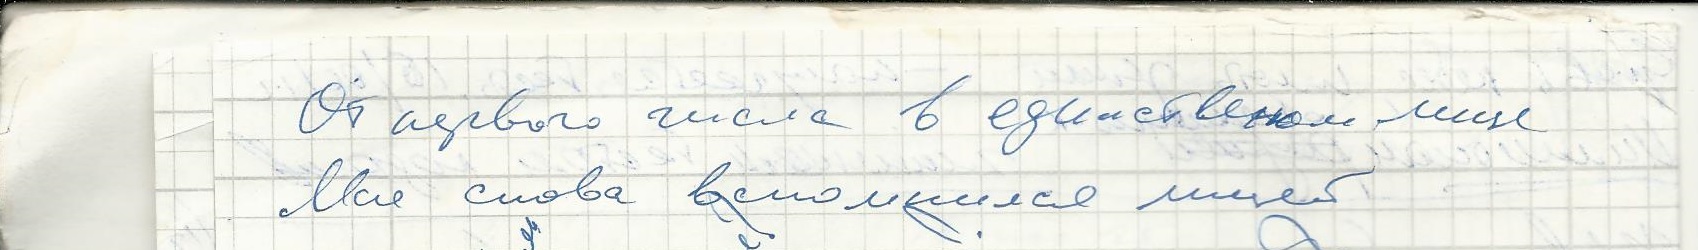 От первого числа в единственном лице
Мне снова вспомнился лицей